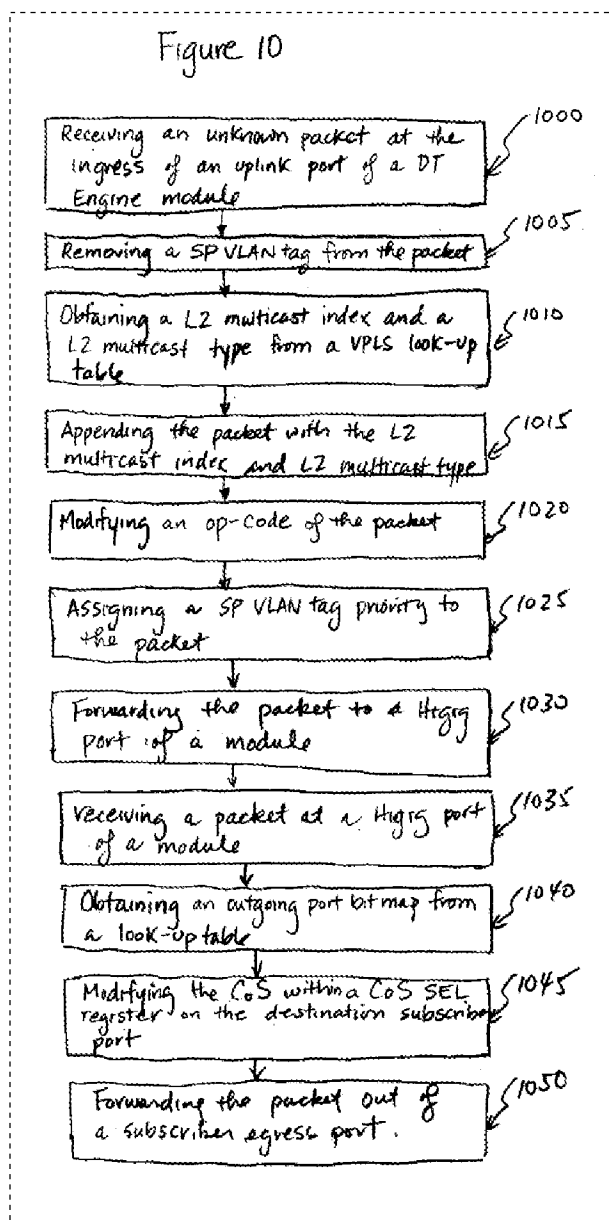 Figure 10
1000
Receiving an unknown packet at the
ingress of an uplink port of a DT
Engine module
1005
Removing a SP VLAN tag from the packet
1010
Obtaining a L2 multicast index and a
L2 multicast type from a VPLS look-up
table
1015
Appending the packet with the L2
multicast index and L2 multicast type
1020
Modifying an op-code of the packet
1025
Assigning a SP VLAN tag priority to
the packet
1030
Forwarding the packet to a Higig
port of a module
1035
receiving a packet at a Higig port
of a module
1040
Obtaining an outgoing port bit map from
a look-up table
1045
Modifying the CoS within a CoS SEL
register on the destination subscriber
port
1050
Forwarding the packet out of
a subscriber egress port.